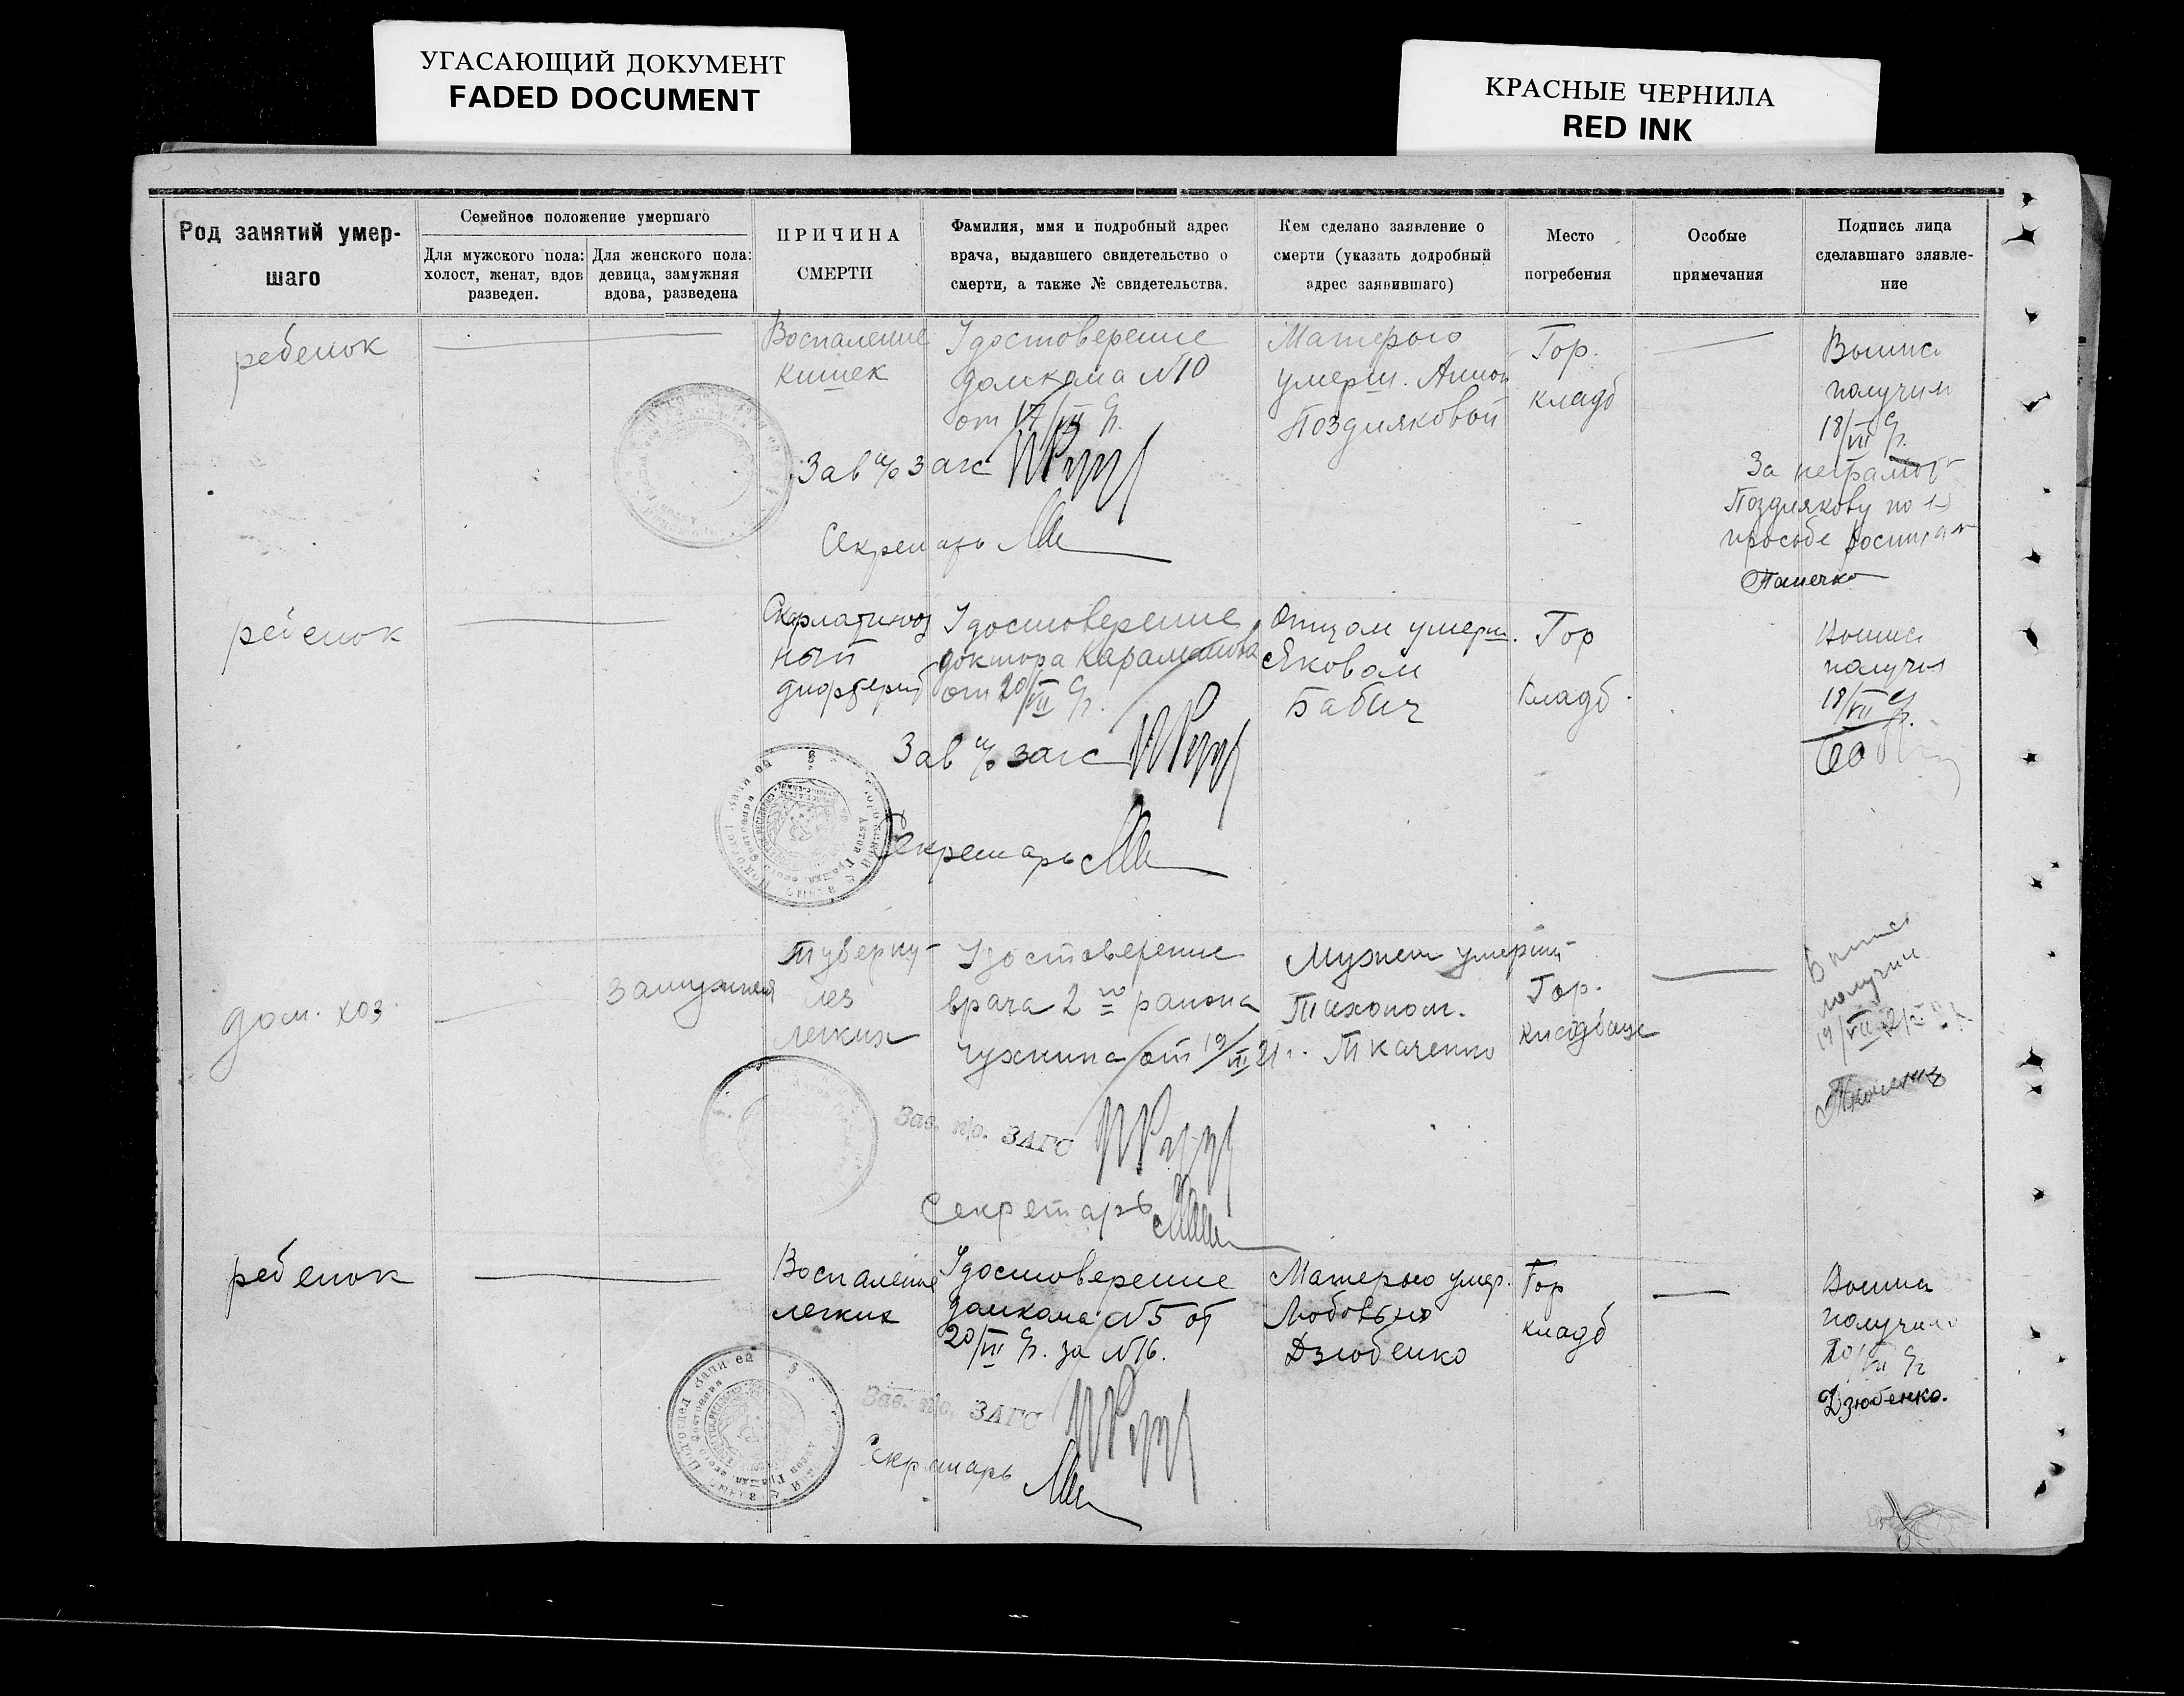 УГАСАЮЩИЙ ДОКУМЕНТ
FADED DOCUMENT
КРАСНЫЕ ЧЕРНИЛА
RED INK
Род занятий умер-
шаго
Семейное положение умершаго
Для мужского пола:
холост, женат, вдов
разведен.
Для женского пола:
девица, замужняя
вдова, разведена
ПРИЧИНА
СМЕРТИ
Фамилия, имя и подробный адрес
врача, выдавшего свидетельство о
смерти, а также № свидетельства.
Кем сделано заявление о
смерти (указать додробный
адрес заявившаго)
Место
погребения
Особые
примечания
Подпись лица
сделавшаго зяявле-
ние
ребенок
Воспаление
кишек
Удостоверение
домкома №10
от 17/VII
Матерью
умерш. Анной
Поздняковой
Гор.
кладб
Выпис
получил
18/VII
За неграмот
Позднякову по
просьбе
Зав п/о загс
Секретарь
ребенок
ный
Удостоверение
доктора
от 20/VII
Отцом умерш.
Яковом
Бабич
Гор
кладб.
Выпис
получил
18/VII
Зав п/о загс
Секретарь
дом. хоз.
Замужняя
Туберку-
лез
легких
Удостоверение
врача 2го района
от 19/VII 21 г.
Мужем умерш
Тихоном.
Ткаченко
Гор.
кладбище
Выпис
получил
19/VII
Зав. п/о. ЗАГС
Секретарь
ребенок
Воспаление
легких
Удостоверение
домкома №5 от
20/VII за №16.
Матерью умер.
Любовью
Дзюбенко
Гор
кладб
Выпис
получила
20/VII
Дзюбенко.
Зав. п/о. ЗАГС
Секретарь